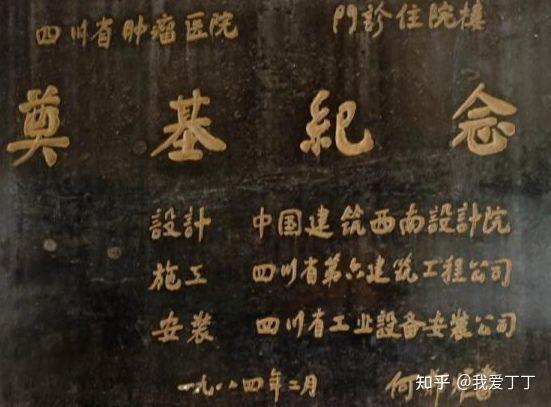 四川省肿瘤医院 門診住院樓
奠基紀念
設計 中国建筑西南設計院
施工 四川省第六建筑工程公司
安装 四川省工业設备安装公司
一九八四年二月 何郝炬書
知乎 @我爱丁丁